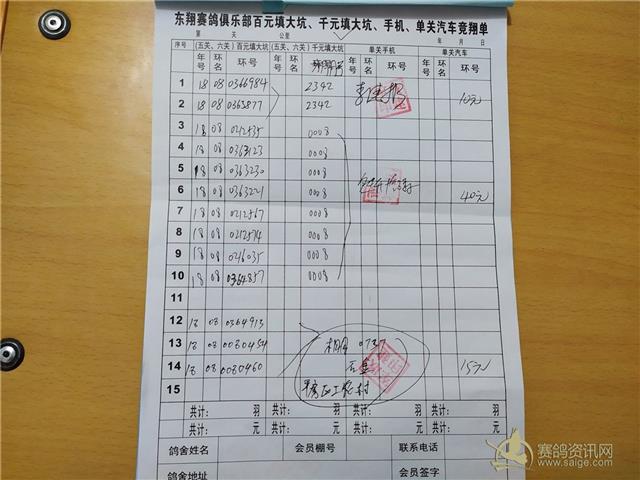 东翔赛鸽俱乐部百元填大坑、千元填大坑、手机、单关汽车竞翔单
第 关 公里 年 月 日
序号 (五关、六关)百元填大坑 (五关、六关)千元填大坑 单关手机 单关汽车
年号 环名 环号 年号 环名 年号 环名 环号 年号 环名 环号
1 18 08 0366984 2342 10元
2 18 08 0363877 2342
3 18 08 0212535 0008
4 18 08 0363123 0008
5 18 08 0363230 0008
6 18 08 0363221 0008 40元
7 18 08 0212567 0008
8 18 08 0212574 0008
9 18 08 0216035 0008
10 18 08 0364857 0008
11
12 18 08 0364913
13 18 08 0080454 0737
14 18 08 0080460 15元
15
共计: 羽 共计: 羽 共计: 羽 共计: 羽
共计: 元 共计: 元 共计: 元 共计: 元
鸽舍姓名 会员棚号 联系电话
鸽舍地址 会员签字
赛鸽资讯网
www.saige.com